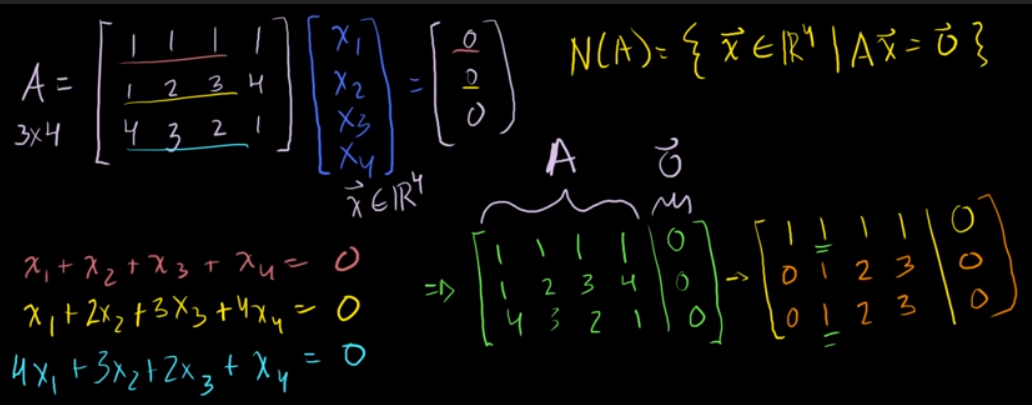 A = [1 1 1 1; 1 2 3 4; 4 3 2 1] [x₁; x₂; x₃; x₄] = [0; 0; 0]
3×4
x⃗ ∈ ℝ⁴
N(A) = { x⃗ ∈ ℝ⁴ | A x⃗ = 0⃗ }
x₁ + x₂ + x₃ + x₄ = 0
x₁ + 2x₂ + 3x₃ + 4x₄ = 0
4x₁ + 3x₂ + 2x₃ + x₄ = 0
A 0⃗
⇒ [1 1 1 1 | 0; 1 2 3 4 | 0; 4 3 2 1 | 0] → [1 1 1 1 | 0; 0 1 2 3 | 0; 0 1 2 3 | 0]